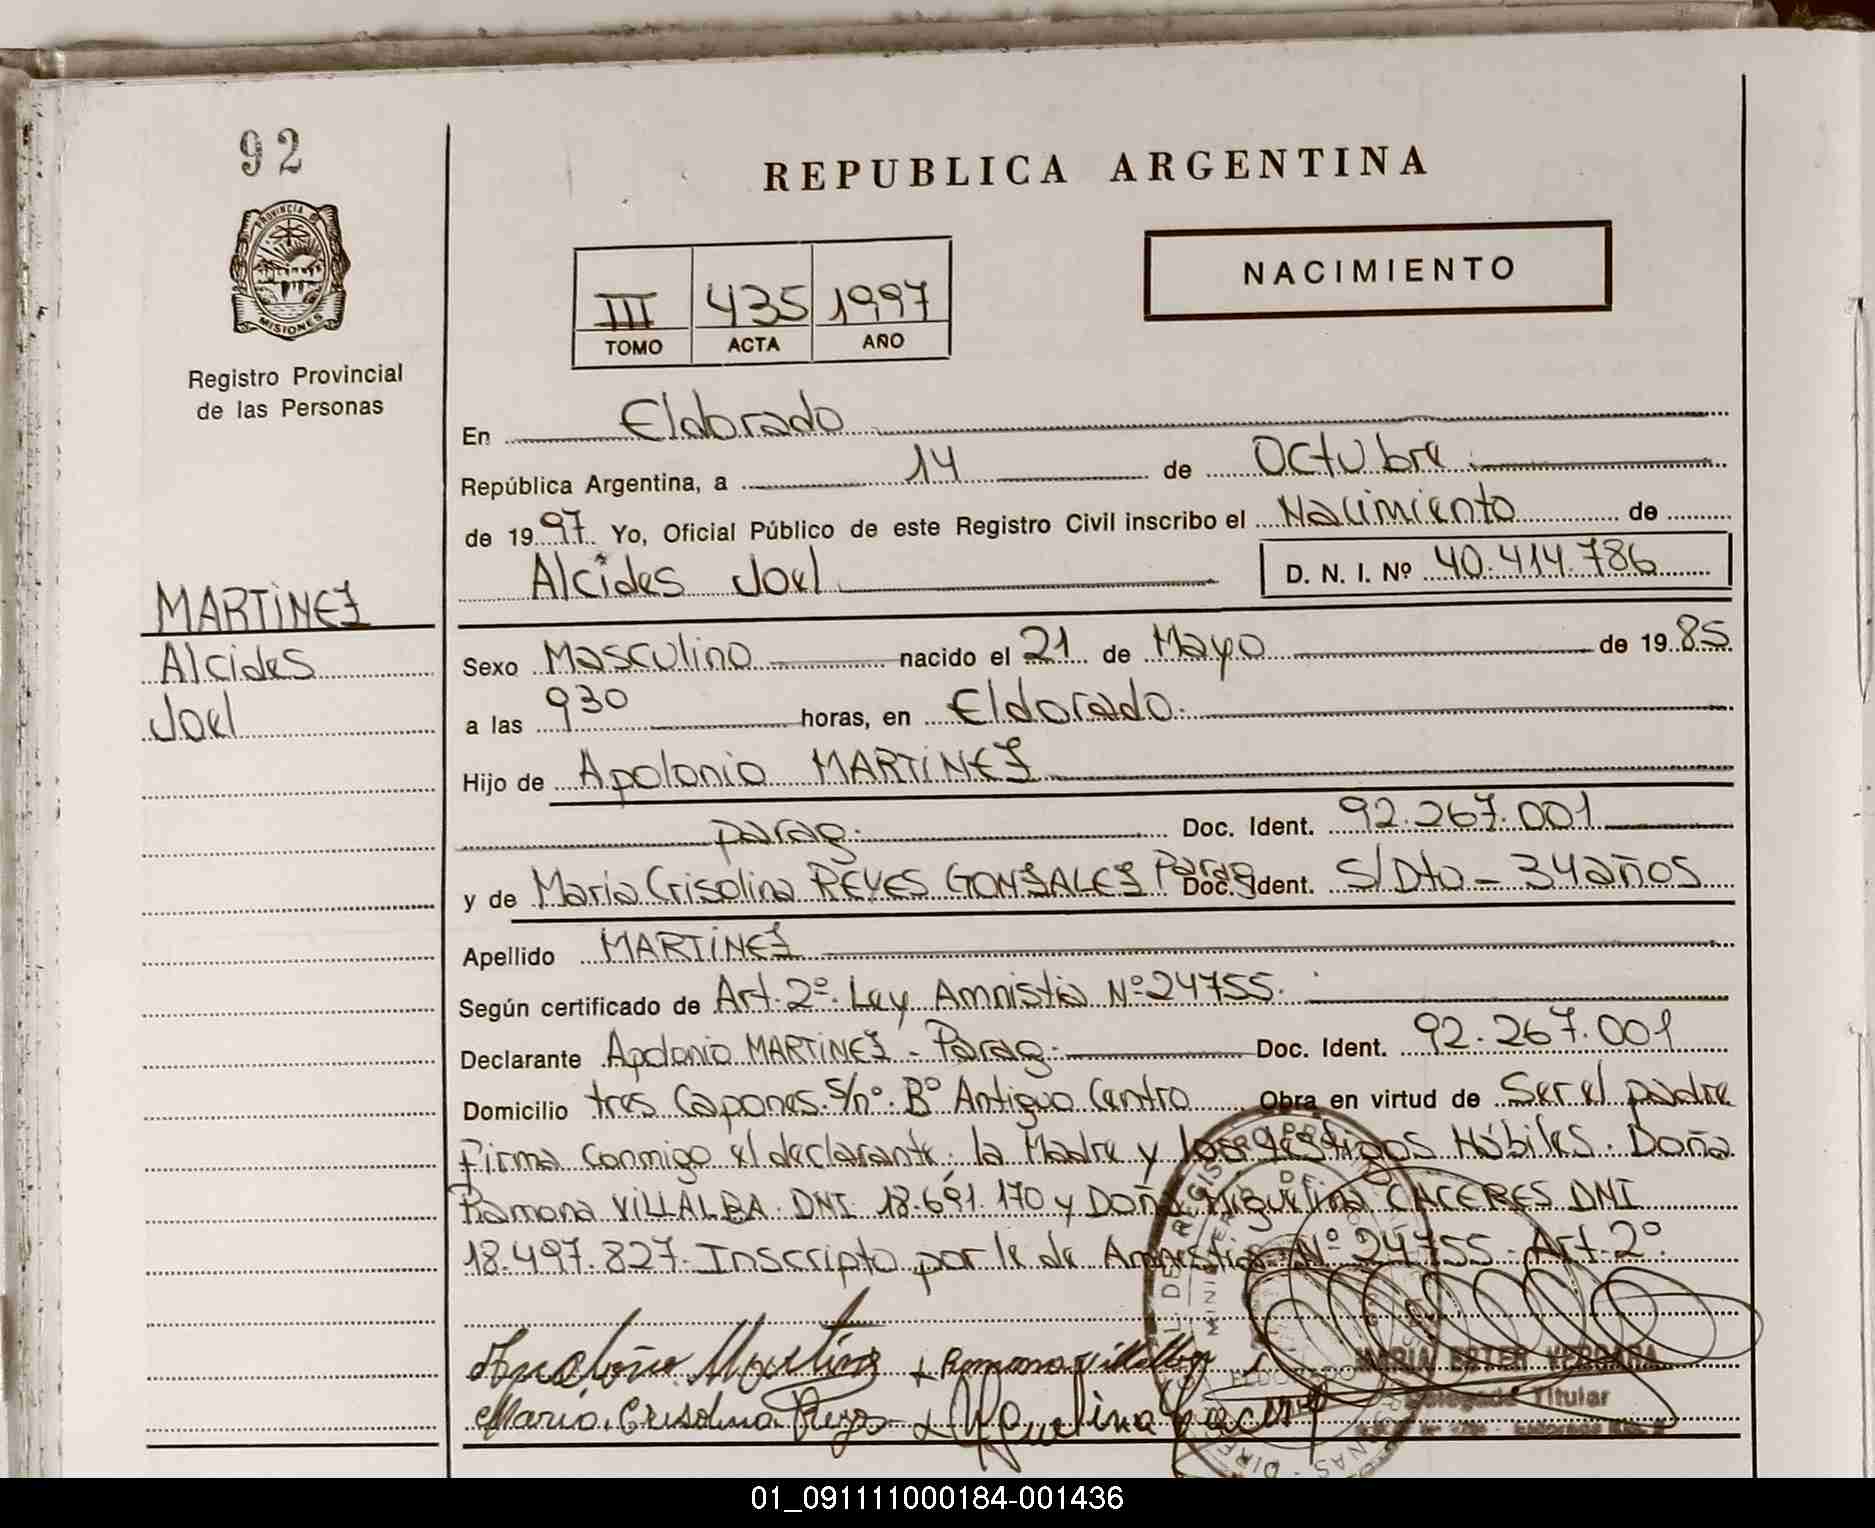 92
REPUBLICA ARGENTINA
PROVINCIA DE
MISIONES
Registro Provincial
de las Personas
III 435 1997
TOMO ACTA AÑO
NACIMIENTO
En Eldorado
República Argentina, a 14 de Octubre
de 1997 Yo, Oficial Público de este Registro Civil inscribo el Nacimiento de
Alcides Joel D. N. I. Nº 40.414.786
MARTINEZ
Alcides
Joel
Sexo Masculino nacido el 21 de Mayo de 1985
a las 930 horas, en Eldorado.
Hijo de Apolonio MARTINEZ
parag. Doc. Ident. 92.267.001
y de Maria Crisolina REYES GONZALEZ Parag Doc. Ident. S/Dto - 34 años
Apellido MARTINEZ
Según certificado de Art. 2º. Ley Amnistia Nº 24755.
Declarante Apolonio MARTINEZ - Parag. Doc. Ident. 92.267.001
Domicilio tres Capones. S/nº. Bº Antiguo Centro Obra en virtud de Ser el padre
firma conmigo el declarante, la Madre y los testigos Hábiles. Doña
Ramona VILLALBA. DNI 18.691.170 y Doña Miguelina CACERES DNI
18.497.827. Inscripto por le de Amnestia Nº 24755 - Art. 2º.
Martinez + Ramona Villalba
Maria Crisolina Reyes + Miguelina Caceres
MARIA ESTER VERGARA
Delegada Titular
01_091111000184-001436